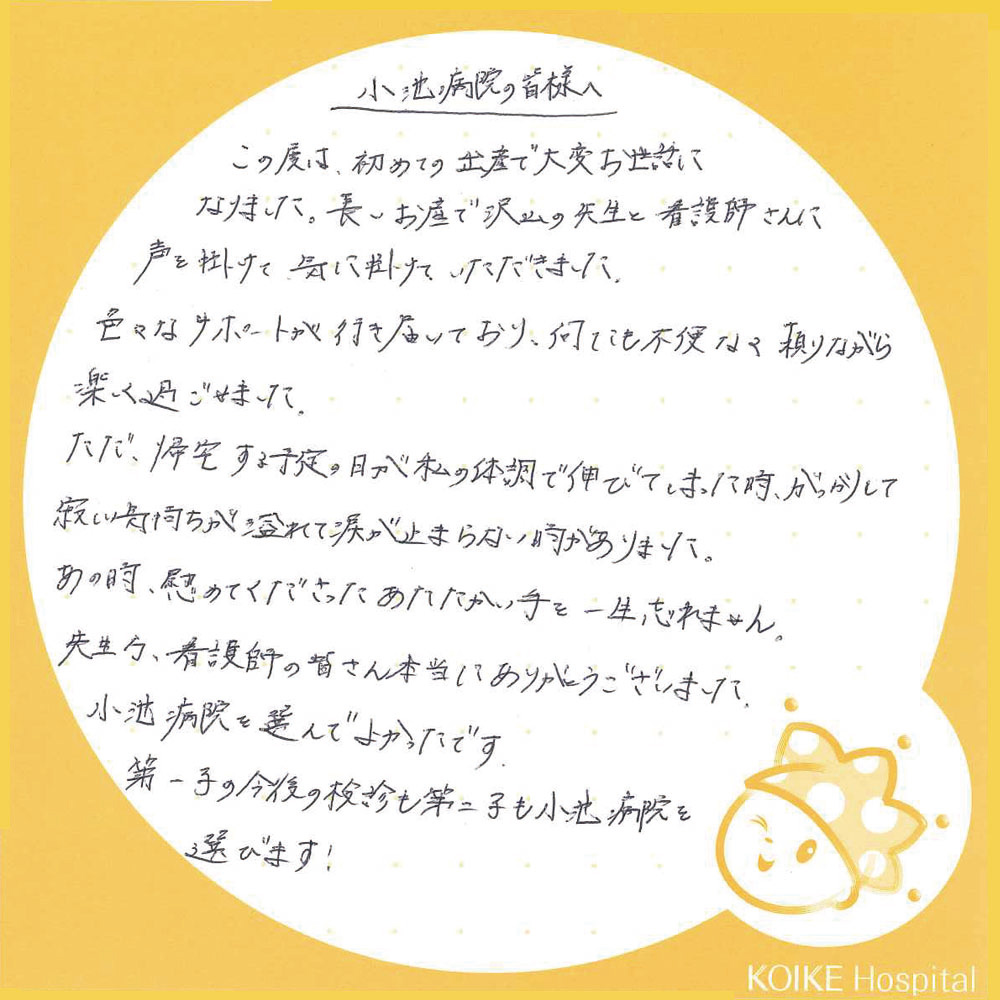 小池病院の皆様へ
この度は、初めての出産で大変お世話に
なりました。長いお産で沢山の先生と看護師さんに
声を掛けて気に掛けていただきました。
色々なサポートが行き届いており、何でも不便なく頼りながら
楽しく過ごせました。
ただ、帰宅する予定の日が私の体調で伸びてしまった時、がっかりして
寂しい気持ちが溢れて涙が止まらない時がありました。
あの時、慰めてくださったあたたかい手を一生忘れません。
先生方、看護師の皆さん本当にありがとうございました。
小池病院を選んでよかったです.
第一子の今後の検診も第二子も小池病院を
選びます!
KOIKE Hospital